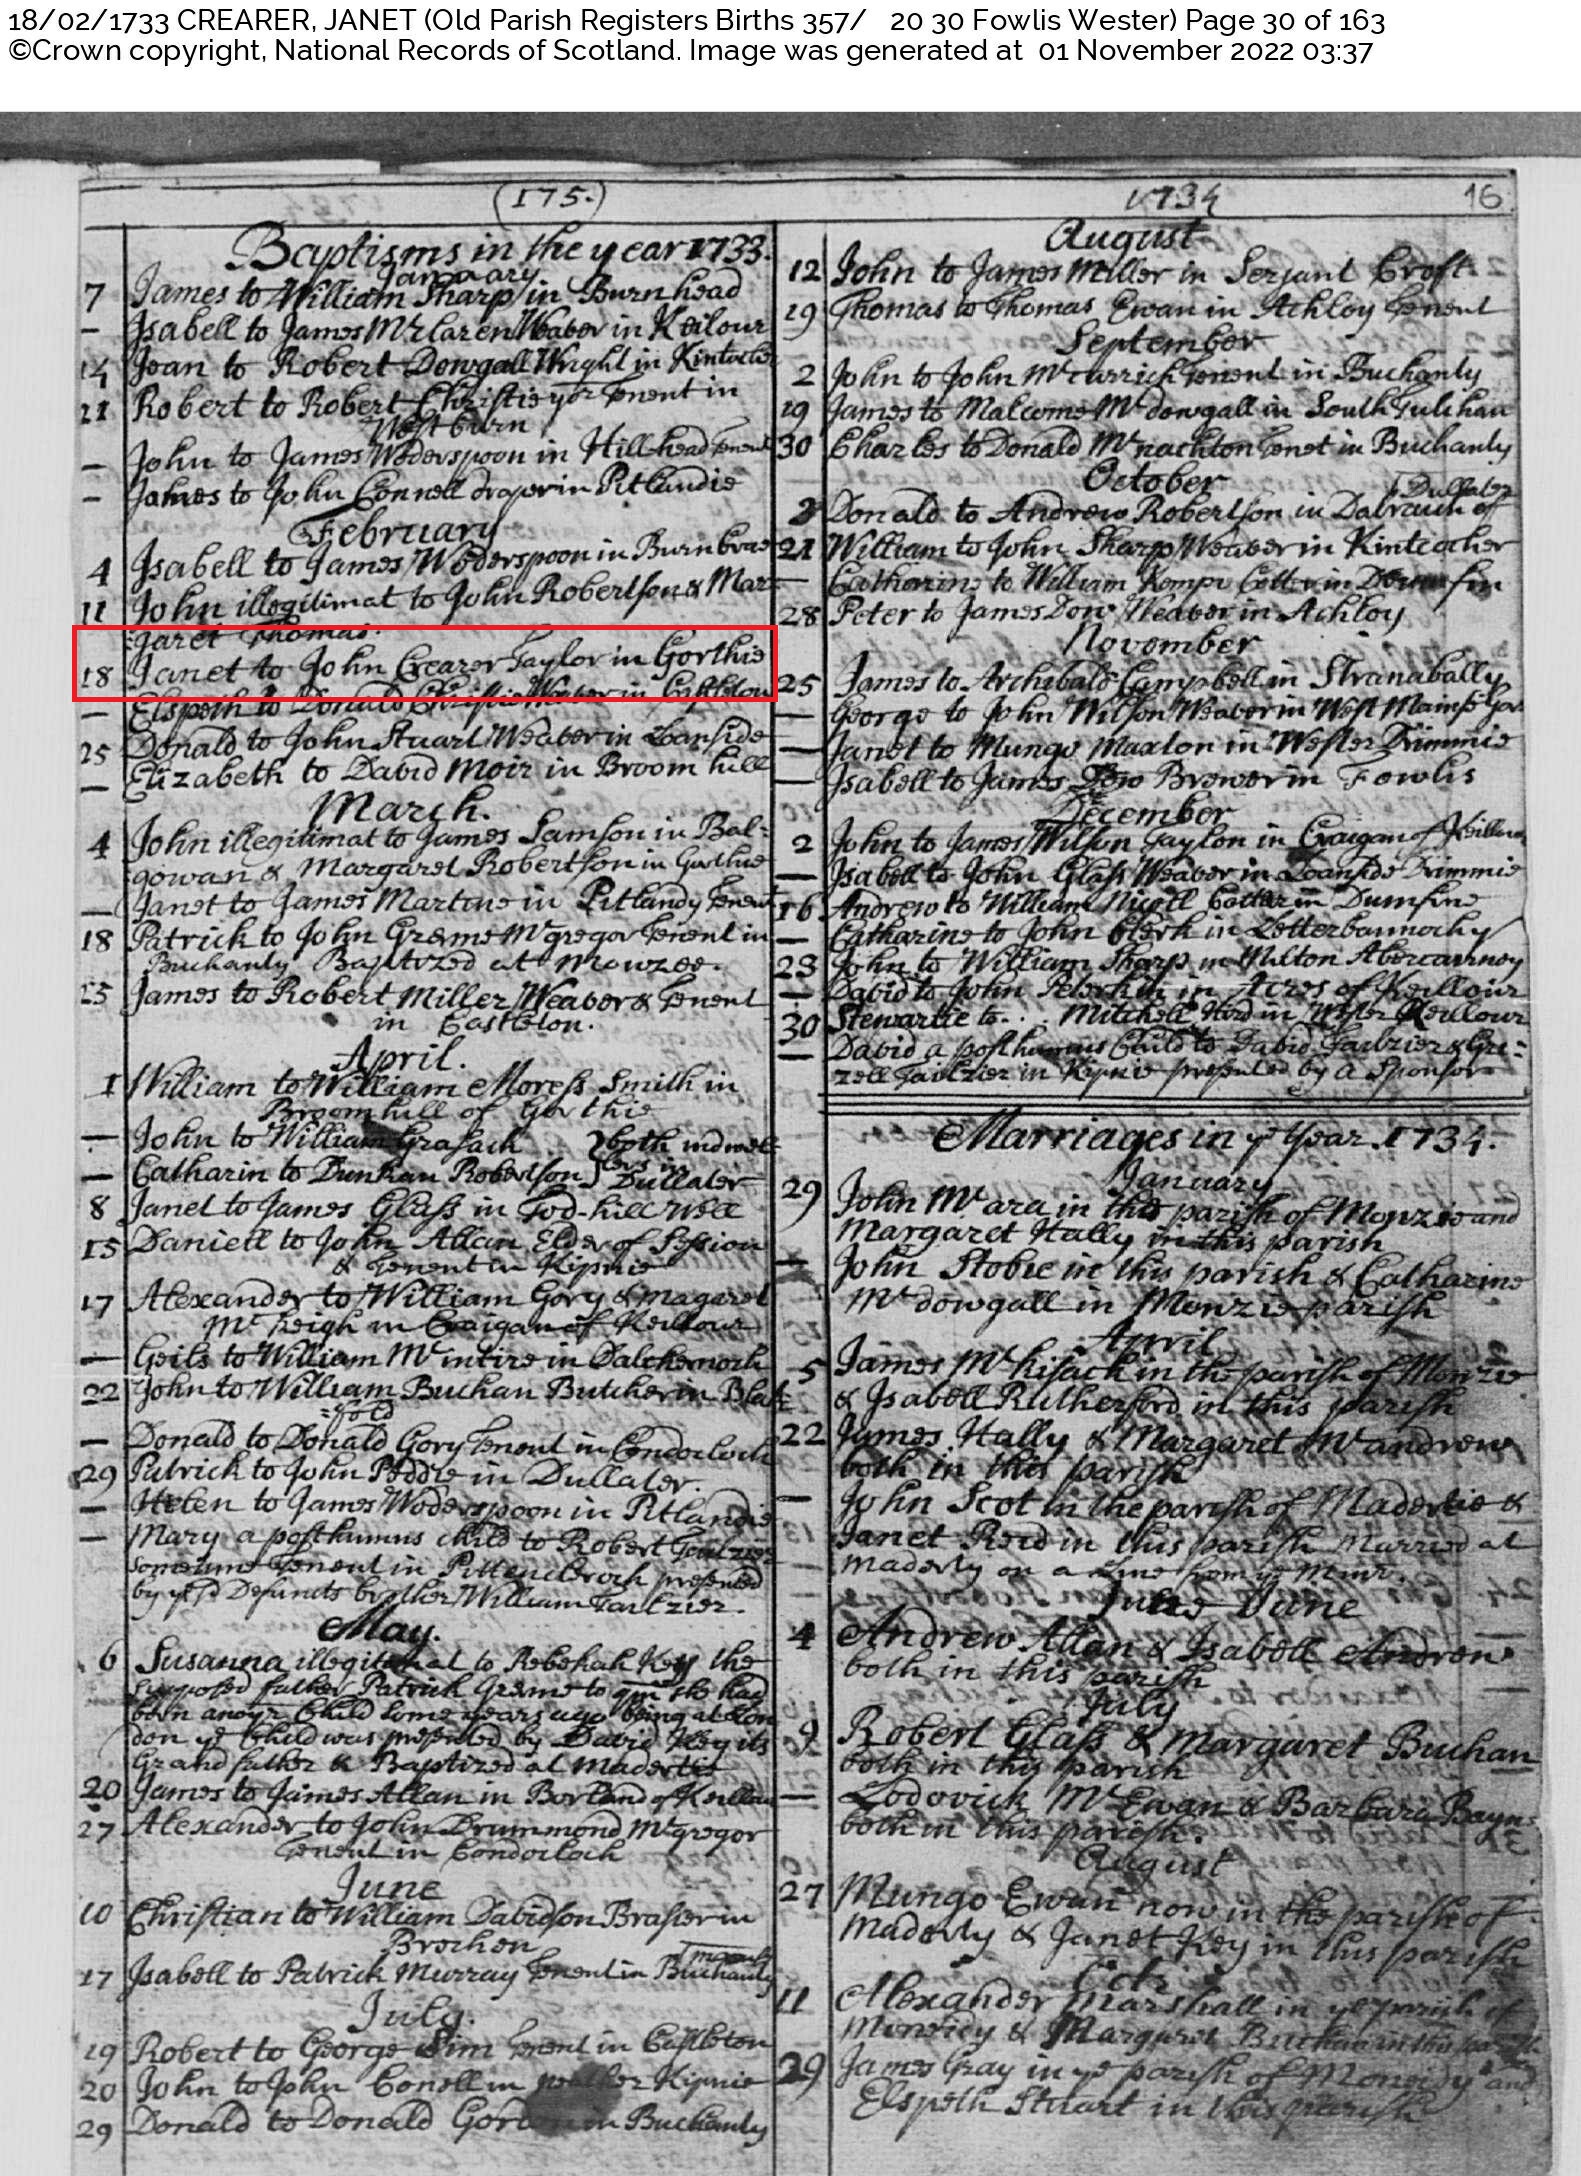 18/02/1733 CREARER, JANET (Old Parish Registers Births 357/ 20 30 Fowlis Wester) Page 30 of 163
©Crown copyright, National Records of Scotland. Image was generated at 01 November 2022 03:37
(175.)
Baptisms in the year 1733.
January
7 James to William Sharp in Burnhead
- Isabell to James Mclaren Weaver in Keilour
14 Jean to Robert Dowgall Wright in
21 Robert to Robert Christie yor Tenent in
West burn
- John to James Woderspoon in Hillhead Tenent
- James to John Connell draper in Pitlandie
February
4 Isabell to James Woderspoon in Burnbrae
11 John illegitimat to John Robertson & Mar-
garet Thomas.
18 Janet to John Crearer Taylor in Gorthie
- Elspeth to Donald Christie Weaver in Castleton
25 Donald to John Stuart Weaver in Loanside
- Elizabeth to David Moir in Broom hill
March.
4 John illegitimat to James Samson in Bal-
gowan & Margaret Robertson in Gorthie
- Janet to James Martine in Pitlandy Tenent
18 Patrick to John Græme Mcgregor Tenent in
Buchanty Baptized at Monzee.
25 James to Robert Miller Weaver & Tenent
in Castleton.
April.
1 William to William Moress Smith in
Broomhill of Gorthie
- John to William } both indwel-
- Catharin to Dunkan Robertson } lers in Dullater
8 Janet to James Glass in Tod-hill well
15 Daniell to John Allan Elder of Session
& Tenent in Kipnie
17 Alexander to William Gory & Magaret
Mc in Craigan of Keillour
- Geils to William Mcintire in
22 John to William Buchan Butcher in Black
=fold
- Donald to Donald Gory Tenent in
29 Patrick to John Peddie in Dullater.
- Helen to James Woderspoon in Pitlandie
- Mary a posthumus child to Robert Tailzier
sometime Tenent in presented
by ye sd Defuncts brother William Tailzier.
May.
6 Susanna illegitimat to Rebekah Key the
supposed father Patrick Græme to qm she had
born anoyr Child some years ago being at Lon
don ye Child was presented by David Key its
Grandfather & Baptized at Madertie
20 James to James Allan in Borland of Keillour
27 Alexander to John Drummond Mcgregor
Tenent in
June
10 Christian to William Davidson Brasier in
17 Isabell to Patrick Murray Tenent in Buchanty
July.
19 Robert to George Sim Tenent in Castleton
20 John to John Conell in Kipnie
29 Donald to Donald in Buchanty
1734 16
August
12 John to James Miller in Serjant Croft
19 Thomas to Thomas Ewan in Achloy Tenent
September
2 John to John Mccurrich Tenent in Buchanty
19 James to Malcome Mcdowgall in South
30 Charles to Donald Mcnachton Tenet in Buchanty
October
Dullater
Donald to Andrew Robertson in of
21 William to John Sharp Weaver in Kintocher
- Catharine to William Kemp Cotter in
28 Peter to James Dow Weaver in Achloy
November
25 James to Archibald Campbell in Stranabally
- George to John Wilson Weaver in West Mains
- Janet to Mungo Maxton in Wester Drimmie
- Isabell to James Dow Brewer in Fowlis
December
2 John to James Wilson Taylor in Craigan of Keillour
- Isabell to John Glass Weaver in Loanside Drimmie
16 Andrew to William Nicoll Cotter in Dumfine
- Catharine to John Clerk in Letterbannochy
23 John to William Sharp in Milton Abercairney
- David to John Peterkin in Acres of Keillour
30 Stewartie to . . . Mitchell Herd in Wester Keillour
- David a posthumus Child to David Tailzier & Gri-
zell Tailzier in Kipnie presented by a Sponsor
Marriages in ye Year 1734.
January
29 John Mcara in the parish of Monzie and
Margaret Hally in this parish
- John Stobie in this parish & Catharine
Mcdowgall in Monzie parish
April
5 James Mckisack in the parish of Monzie
& Isabell Rutherford in this parish
22 James Hally & Margaret Mcandrew
both in this parish
- John Scot in the parish of Madertie &
Janet Reid in this parish Married at
Maderty on a Line from ye Minr.
June
4 Andrew Allan & Isabell Andrew
both in this parish
July
9 Robert Glass & Margaret Buchan
both in this parish
- Lodovick Mc Ewan & Barbara Bayn
both in this parish.
August
27 Mungo Ewan now in the parish of
Maderty & Janet Key in this parish
Octr
11 Alexander Marshall in ye parish of
& Margaret Buchan in this parish
29 James Gray in ye parish of and
Elspeth Stuart in this parish